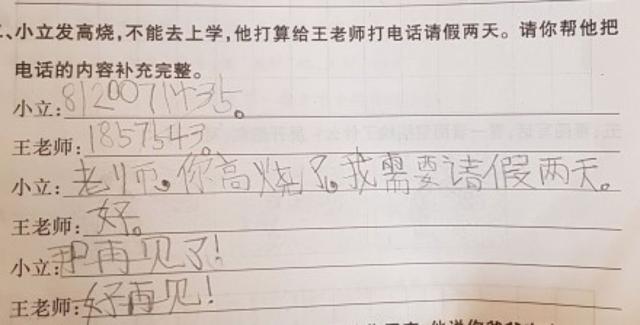 二、小立发高烧，不能去上学，他打算给王老师打电话请假两天。请你帮他把
电话的内容补充完整。
小立：8120071435。
王老师：1857543。
小立：老师。你高烧了。我需要请假两天。
王老师：好。
小立：再见了！
王老师：好再见！